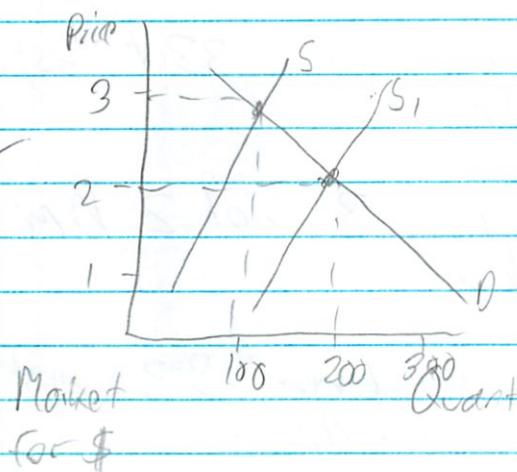 Price
S
3
S1
2
1
D
100 200 300
Quant
Market
for $